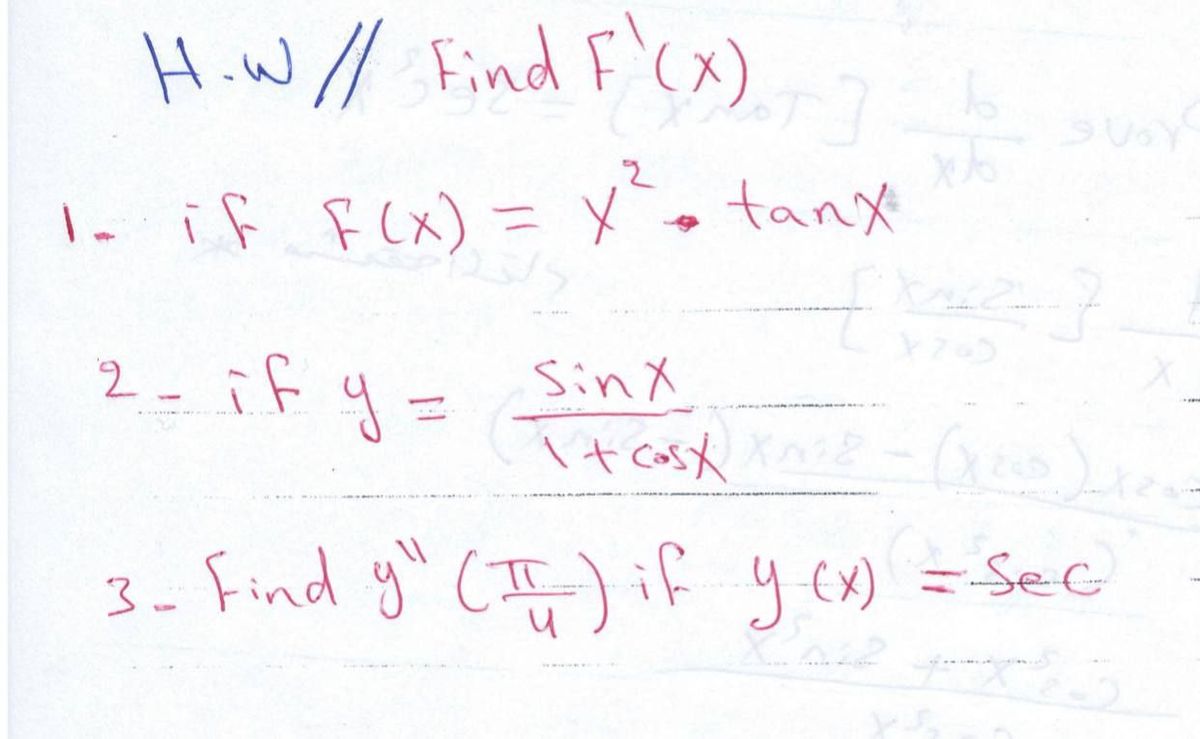 H.W // Find F'(x)
1- if f(x) = x² • tanx
2- if y = sinx / 1+cosx
3- Find y'' (π/4) if y(x) = sec